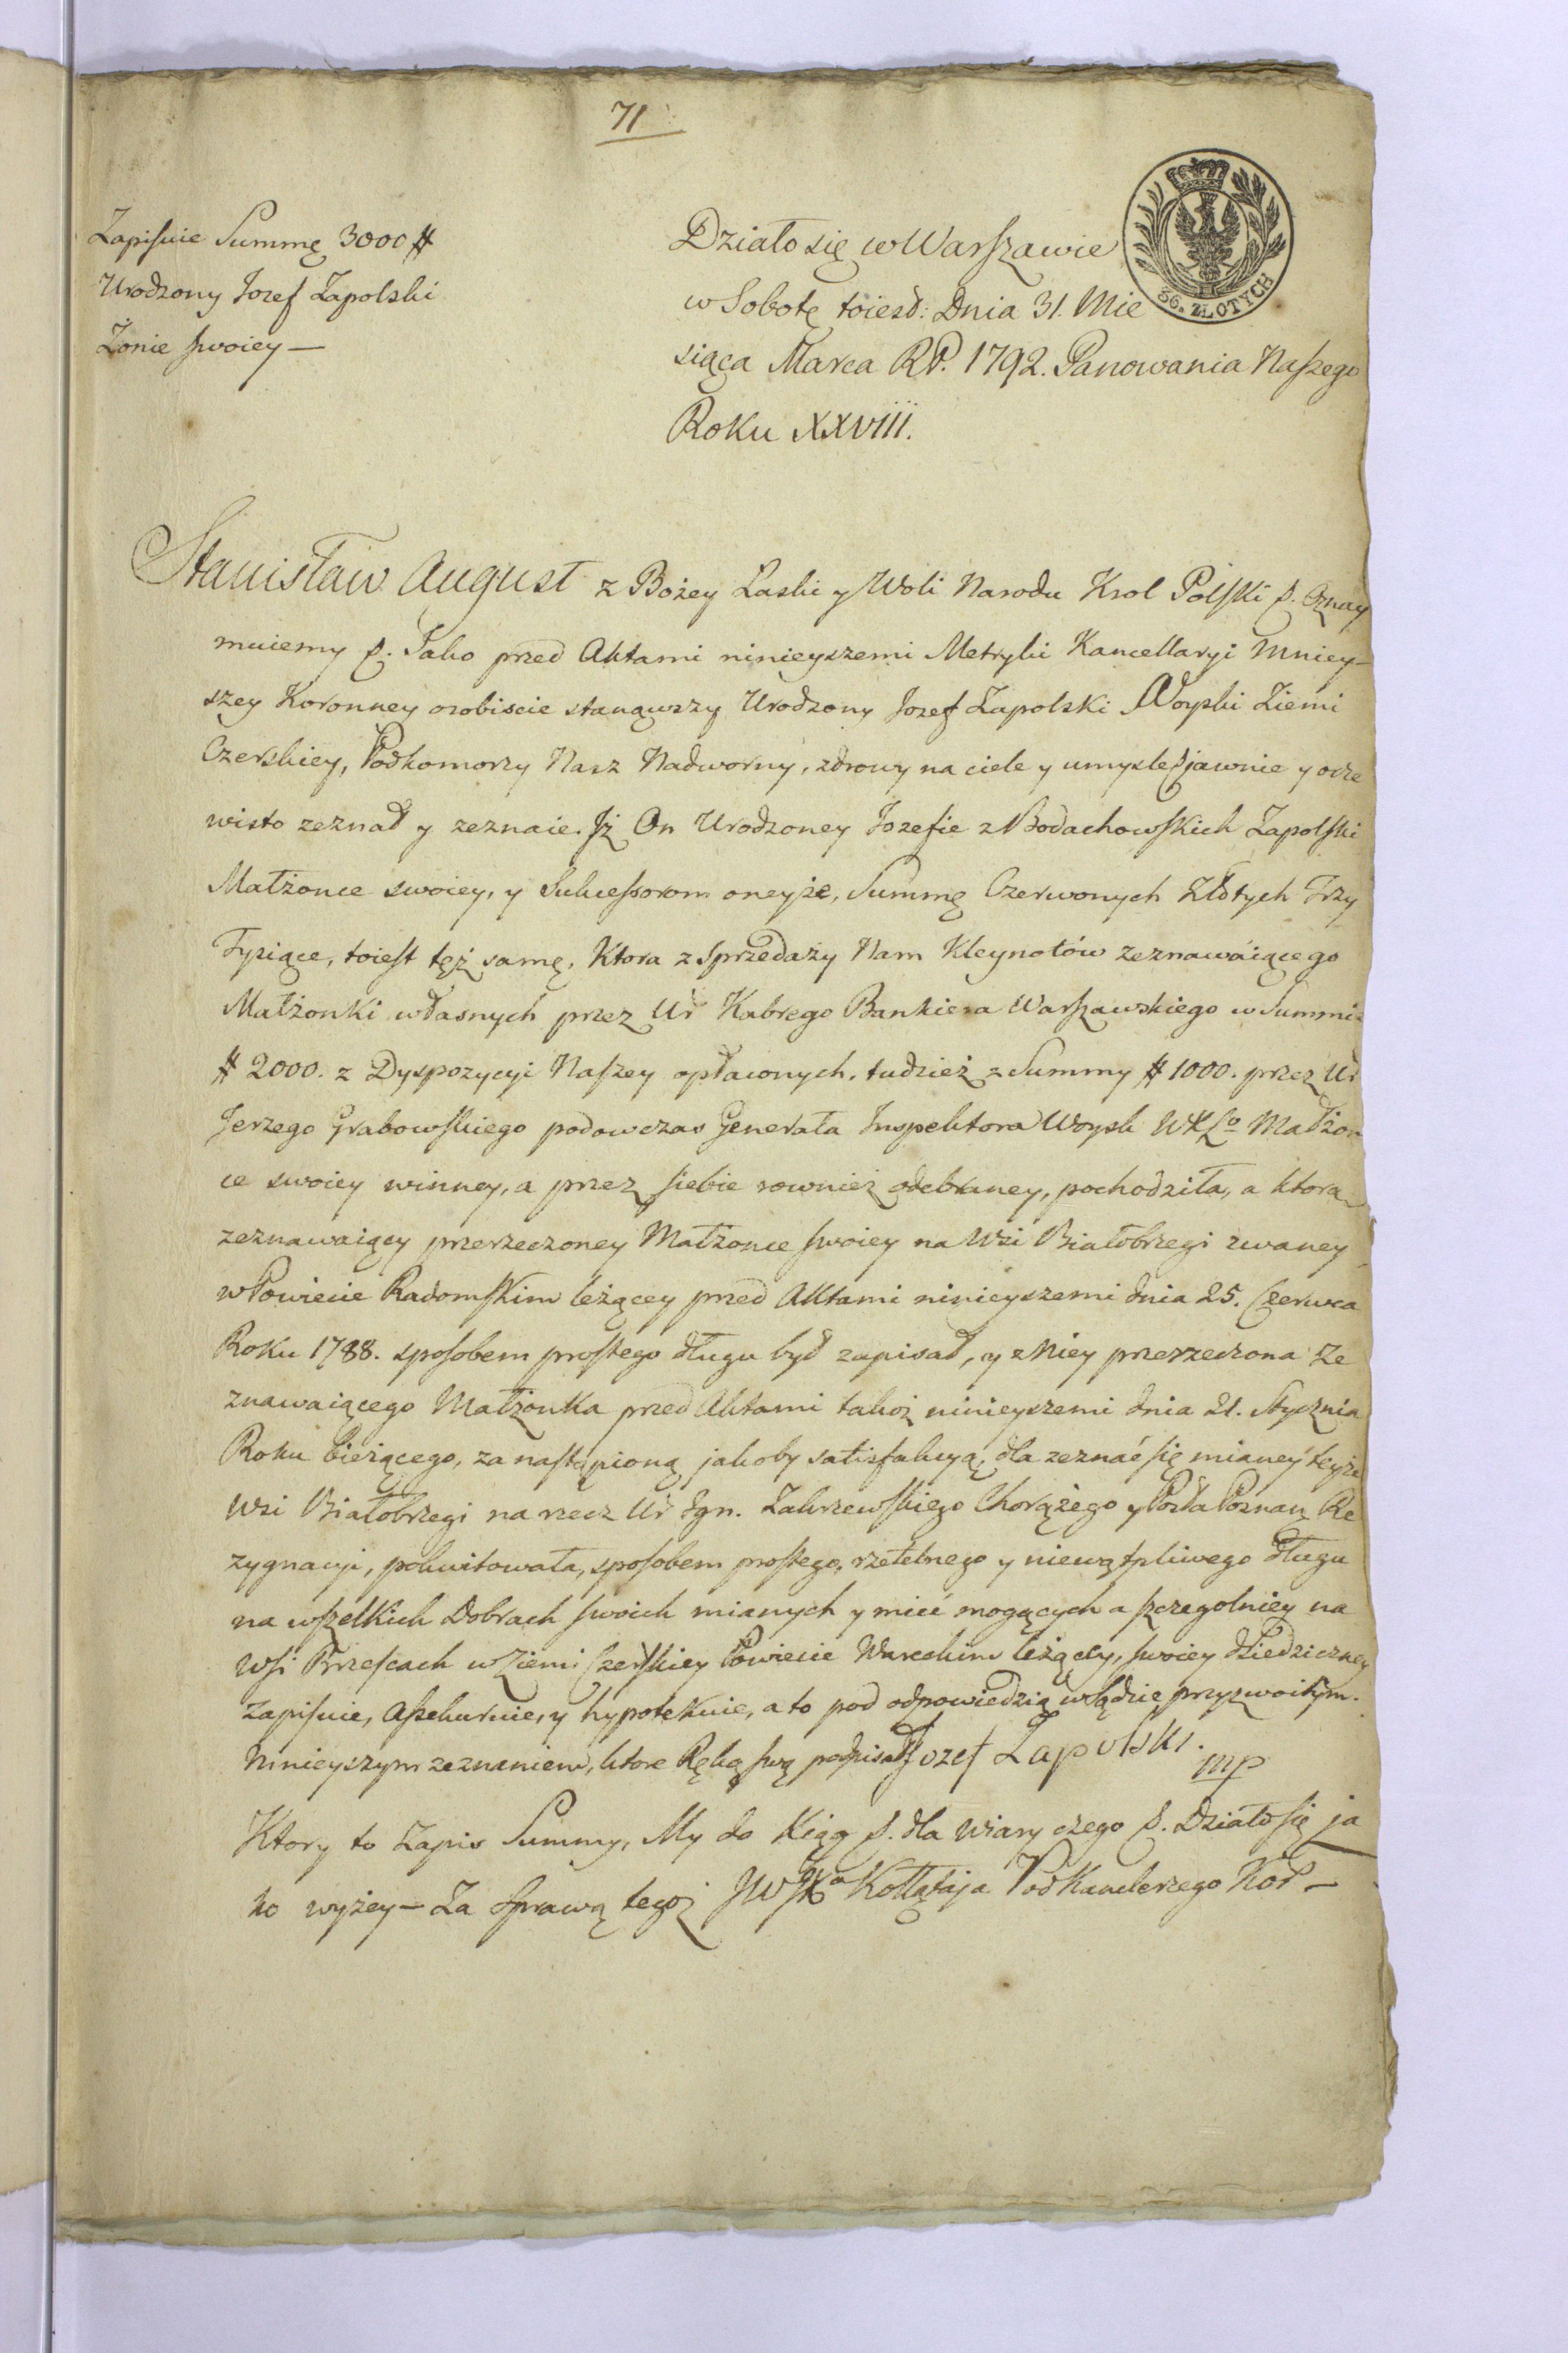 71
Zapisuie Summę 3000 #
Urodzony Jozef Zapolski
Żonie swoiey —
Działo się w Warszawie
w Sobotę toiesd: Dnia 31. Mie
siąca Marca RP. 1792. Panowania Naszego
Roku XXVIII.
36. ZŁOTYCH
Stanisław August z Bożey Łaski y Woli Narodu Krol Polski &. Oznay
muiemy &. Jako przed Aktami ninieyszemi Metryki Kancellaryi Mniey-
szey Koronney osobiscie stanąwszy Urodzony Jozef Zapolski Woyski Ziemi
Czerskiey, Podkomorzy Nasz Nadworny, zdrowy na ciele y umysle jawnie y ocze
wisto zeznał y zeznaie. Jż On Urodzoney Jozefie z Bodachowskich Zapolski
Małżonce swoiey, y Sukcessorom oneyże, Summę Czerwonych Złotych Trzy
Tysiące, toiest tęż samę, Ktora z Sprzedaży Nam Kleynotów zeznawaiącego
Małżonki własnych przez Ur Kabrego Bankiera Warszawskiego w Summie
# 2000. z Dyspozycyi Naszey opłaconych, tudzież z Summy # 1000. przez Ur
Jerzego Grabowskiego podowczas Generała Inspektora Woysk WXLo Małżon
ce swoiey winney, a przez siebie rownież odebraney, pochodziła, a ktora
zeznawaiący przerzeczoney Małżonce swoiey na Wsi Białobrzegi zwaney
w Powiecie Radomskim leżącey przed Aktami ninieyszemi dnia 25. Czerwca
Roku 1788. sposobem prostego długu był zapisał, y z Niey przerzeczona Ze
znawaiącego Małżonka przed Aktami takoż ninieyszemi dnia 21. Stycznia
Roku bieżącego, za nastąpioną jakoby satisfakcyą, dla zeznać się mianey teyże
Wsi Białobrzegi na rzecz Ur Jgn. Zakrzewskiego Chorążego y Posła Poznań Re
zygnacyi, pokwitowała, sposobem prostego, rzetelnego y niewątpliwego Długu
na wszelkich Dobrach swoich mianych y mieć mogących a szczegolniey na
Wsi Brzescach w Ziemi Czerskiey Powiecie Wareckim leżącey, swoiey dziedziczney
Zapisuie, Assekuruie, y hypotekuie, a to pod odpowiedzią w Sądzie przyzwoitym.
Ninieyszym zeznaniem, ktore Ręką swą podpisał Jozef Zapolski.
mp
Ktory to Zapis Summy, My do Xiąg &. dla Wiary czego &. Działo się ja
ko wyżey — Za Sprawą tegoż JWJXa Kołłątaja PodKanclerzego Kor —